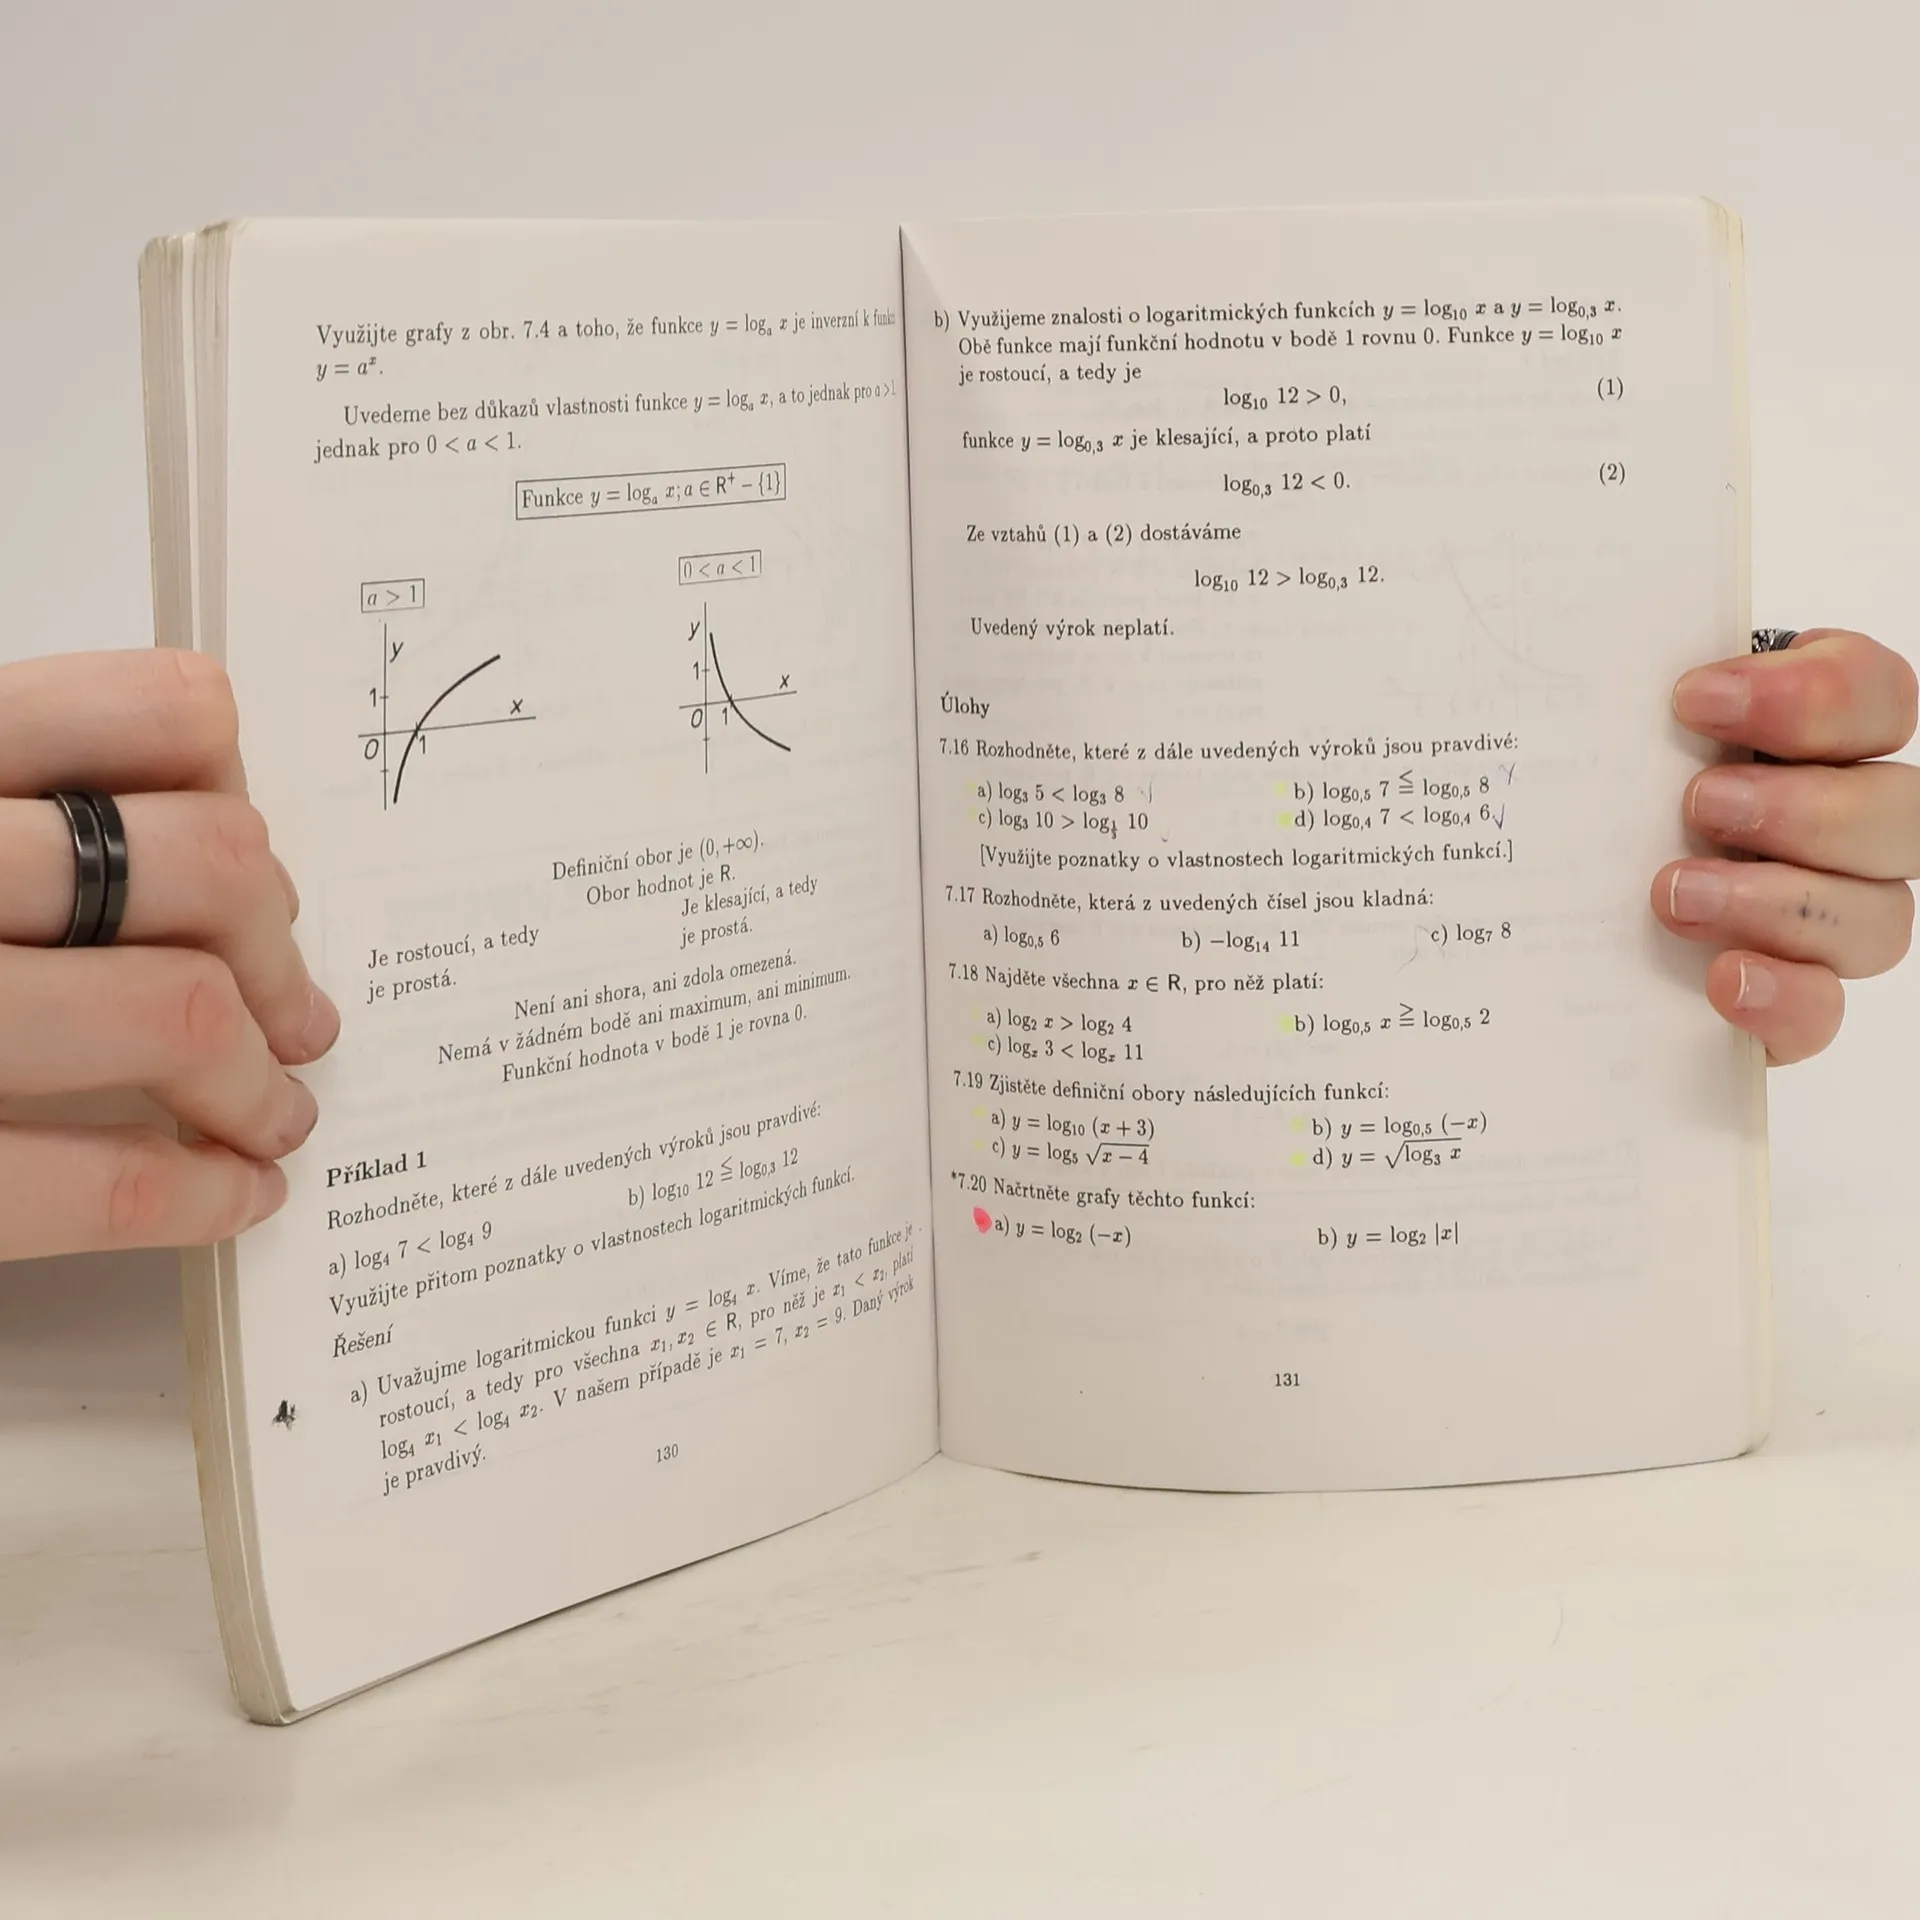 Využijte grafy z obr. 7.4 a toho, že funkce y = logₐ x je inverzní k
y = aˣ.
Uvedeme bez důkazů vlastnosti funkce y = logₐ x, a to jednak pro a > 1
jednak pro 0 < a < 1.
Funkce y = logₐ x; a ∈ R⁺ − {1}
a > 1
0 < a < 1
y
1
0
1
x
y
1
0
1
x
Definiční obor je (0, +∞).
Obor hodnot je R.
Je rostoucí, a tedy
je prostá.
Je klesající, a tedy
je prostá.
Není ani shora, ani zdola omezená.
Nemá v žádném bodě ani maximum, ani minimum.
Funkční hodnota v bodě 1 je rovna 0.
Příklad 1
Rozhodněte, které z dále uvedených výroků jsou pravdivé:
a) log₄ 7 < log₄ 9 b) log₁₀ 12 ≦ log₀,₃ 12
Využijte přitom poznatky o vlastnostech logaritmických funkcí.
Řešení
a) Uvažujme logaritmickou funkci y = log₄ x. Víme, že tato funkce je
rostoucí, a tedy pro všechna x₁, x₂ ∈ R, pro něž je x₁ < x₂, platí
log₄ x₁ < log₄ x₂. V našem případě je x₁ = 7, x₂ = 9. Daný výrok
je pravdivý.
130
b) Využijeme znalosti o logaritmických funkcích y = log₁₀ x a y = log₀,₃ x.
Obě funkce mají funkční hodnotu v bodě 1 rovnu 0. Funkce y = log₁₀ x
je rostoucí, a tedy je
log₁₀ 12 > 0, (1)
funkce y = log₀,₃ x je klesající, a proto platí
log₀,₃ 12 < 0. (2)
Ze vztahů (1) a (2) dostáváme
log₁₀ 12 > log₀,₃ 12.
Uvedený výrok neplatí.
Úlohy
7.16 Rozhodněte, které z dále uvedených výroků jsou pravdivé:
a) log₃ 5 < log₃ 8 b) log₀,₅ 7 ≦ log₀,₅ 8
c) log₃ 10 > log_⅓ 10 d) log₀,₄ 7 < log₀,₄ 6
[Využijte poznatky o vlastnostech logaritmických funkcí.]
7.17 Rozhodněte, která z uvedených čísel jsou kladná:
a) log₀,₅ 6 b) −log₁₄ 11 c) log₇ 8
7.18 Najděte všechna x ∈ R, pro něž platí:
a) log₂ x > log₂ 4 b) log₀,₅ x ≧ log₀,₅ 2
c) logₓ 3 < logₓ 11
7.19 Zjistěte definiční obory následujících funkcí:
a) y = log₁₀ (x + 3) b) y = log₀,₅ (−x)
c) y = log₅ √(x − 4) d) y = √(log₃ x)
*7.20 Načrtněte grafy těchto funkcí:
a) y = log₂ (−x) b) y = log₂ |x|
131